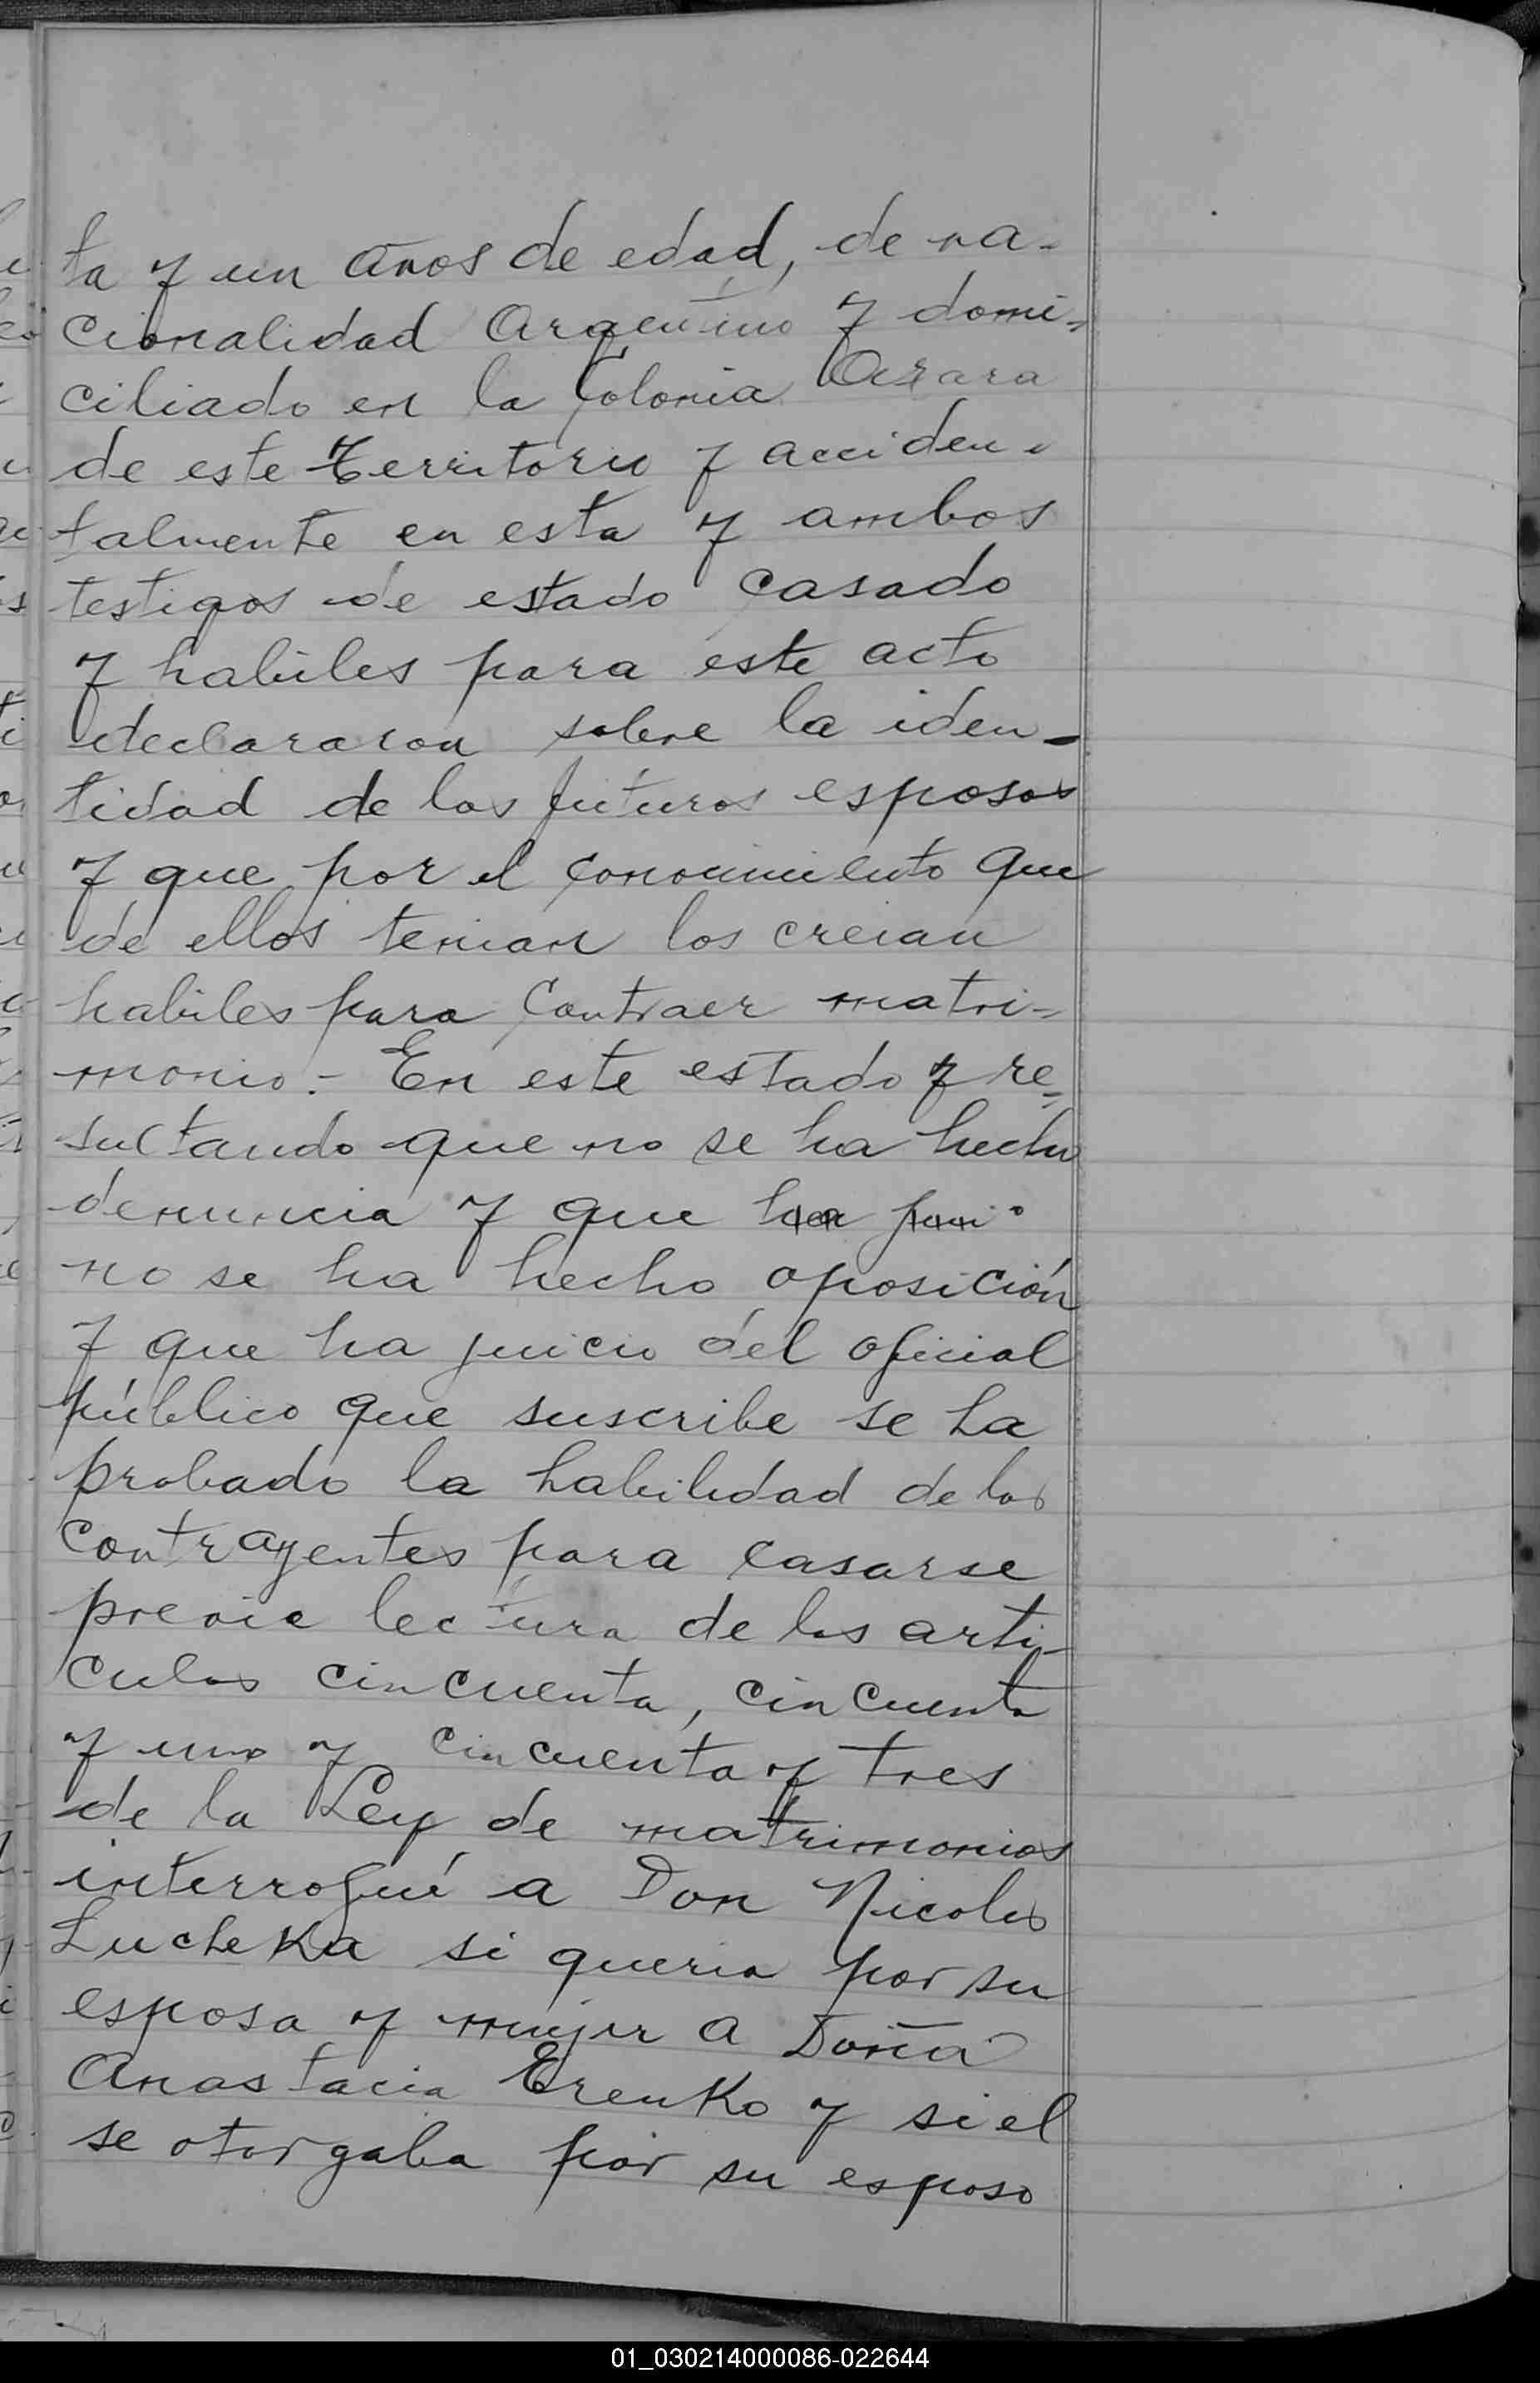 ta y un años de edad, de na-
cionalidad Argentino y domi-
ciliado en la Colonia Azara
de este Territorio y acciden-
talmente en esta y ambos
testigos de estado casado
y habiles para este acto
declararon sobre la iden-
tidad de los futuros esposos
y que por el conocimiento que
de ellos tenian los creian
habiles para contraer matri-
monio.- En este estado y re-
sultando que no se ha hecho
denuncia y que ha
no se ha hecho oposición
y que ha juicio del oficial
público que suscribe se ha
probado la habilidad de los
contrayentes para casarse
previa lectura de los arti-
culos cincuenta, cincuenta
y uno y cincuenta y tres
de la Ley de matrimonios
interrogué a Don Nicolas
Lucheka si queria por su
esposa y mujer a Doña
Anastacia Erenko y si el
se otorgaba por su esposo
01_030214000086-022644